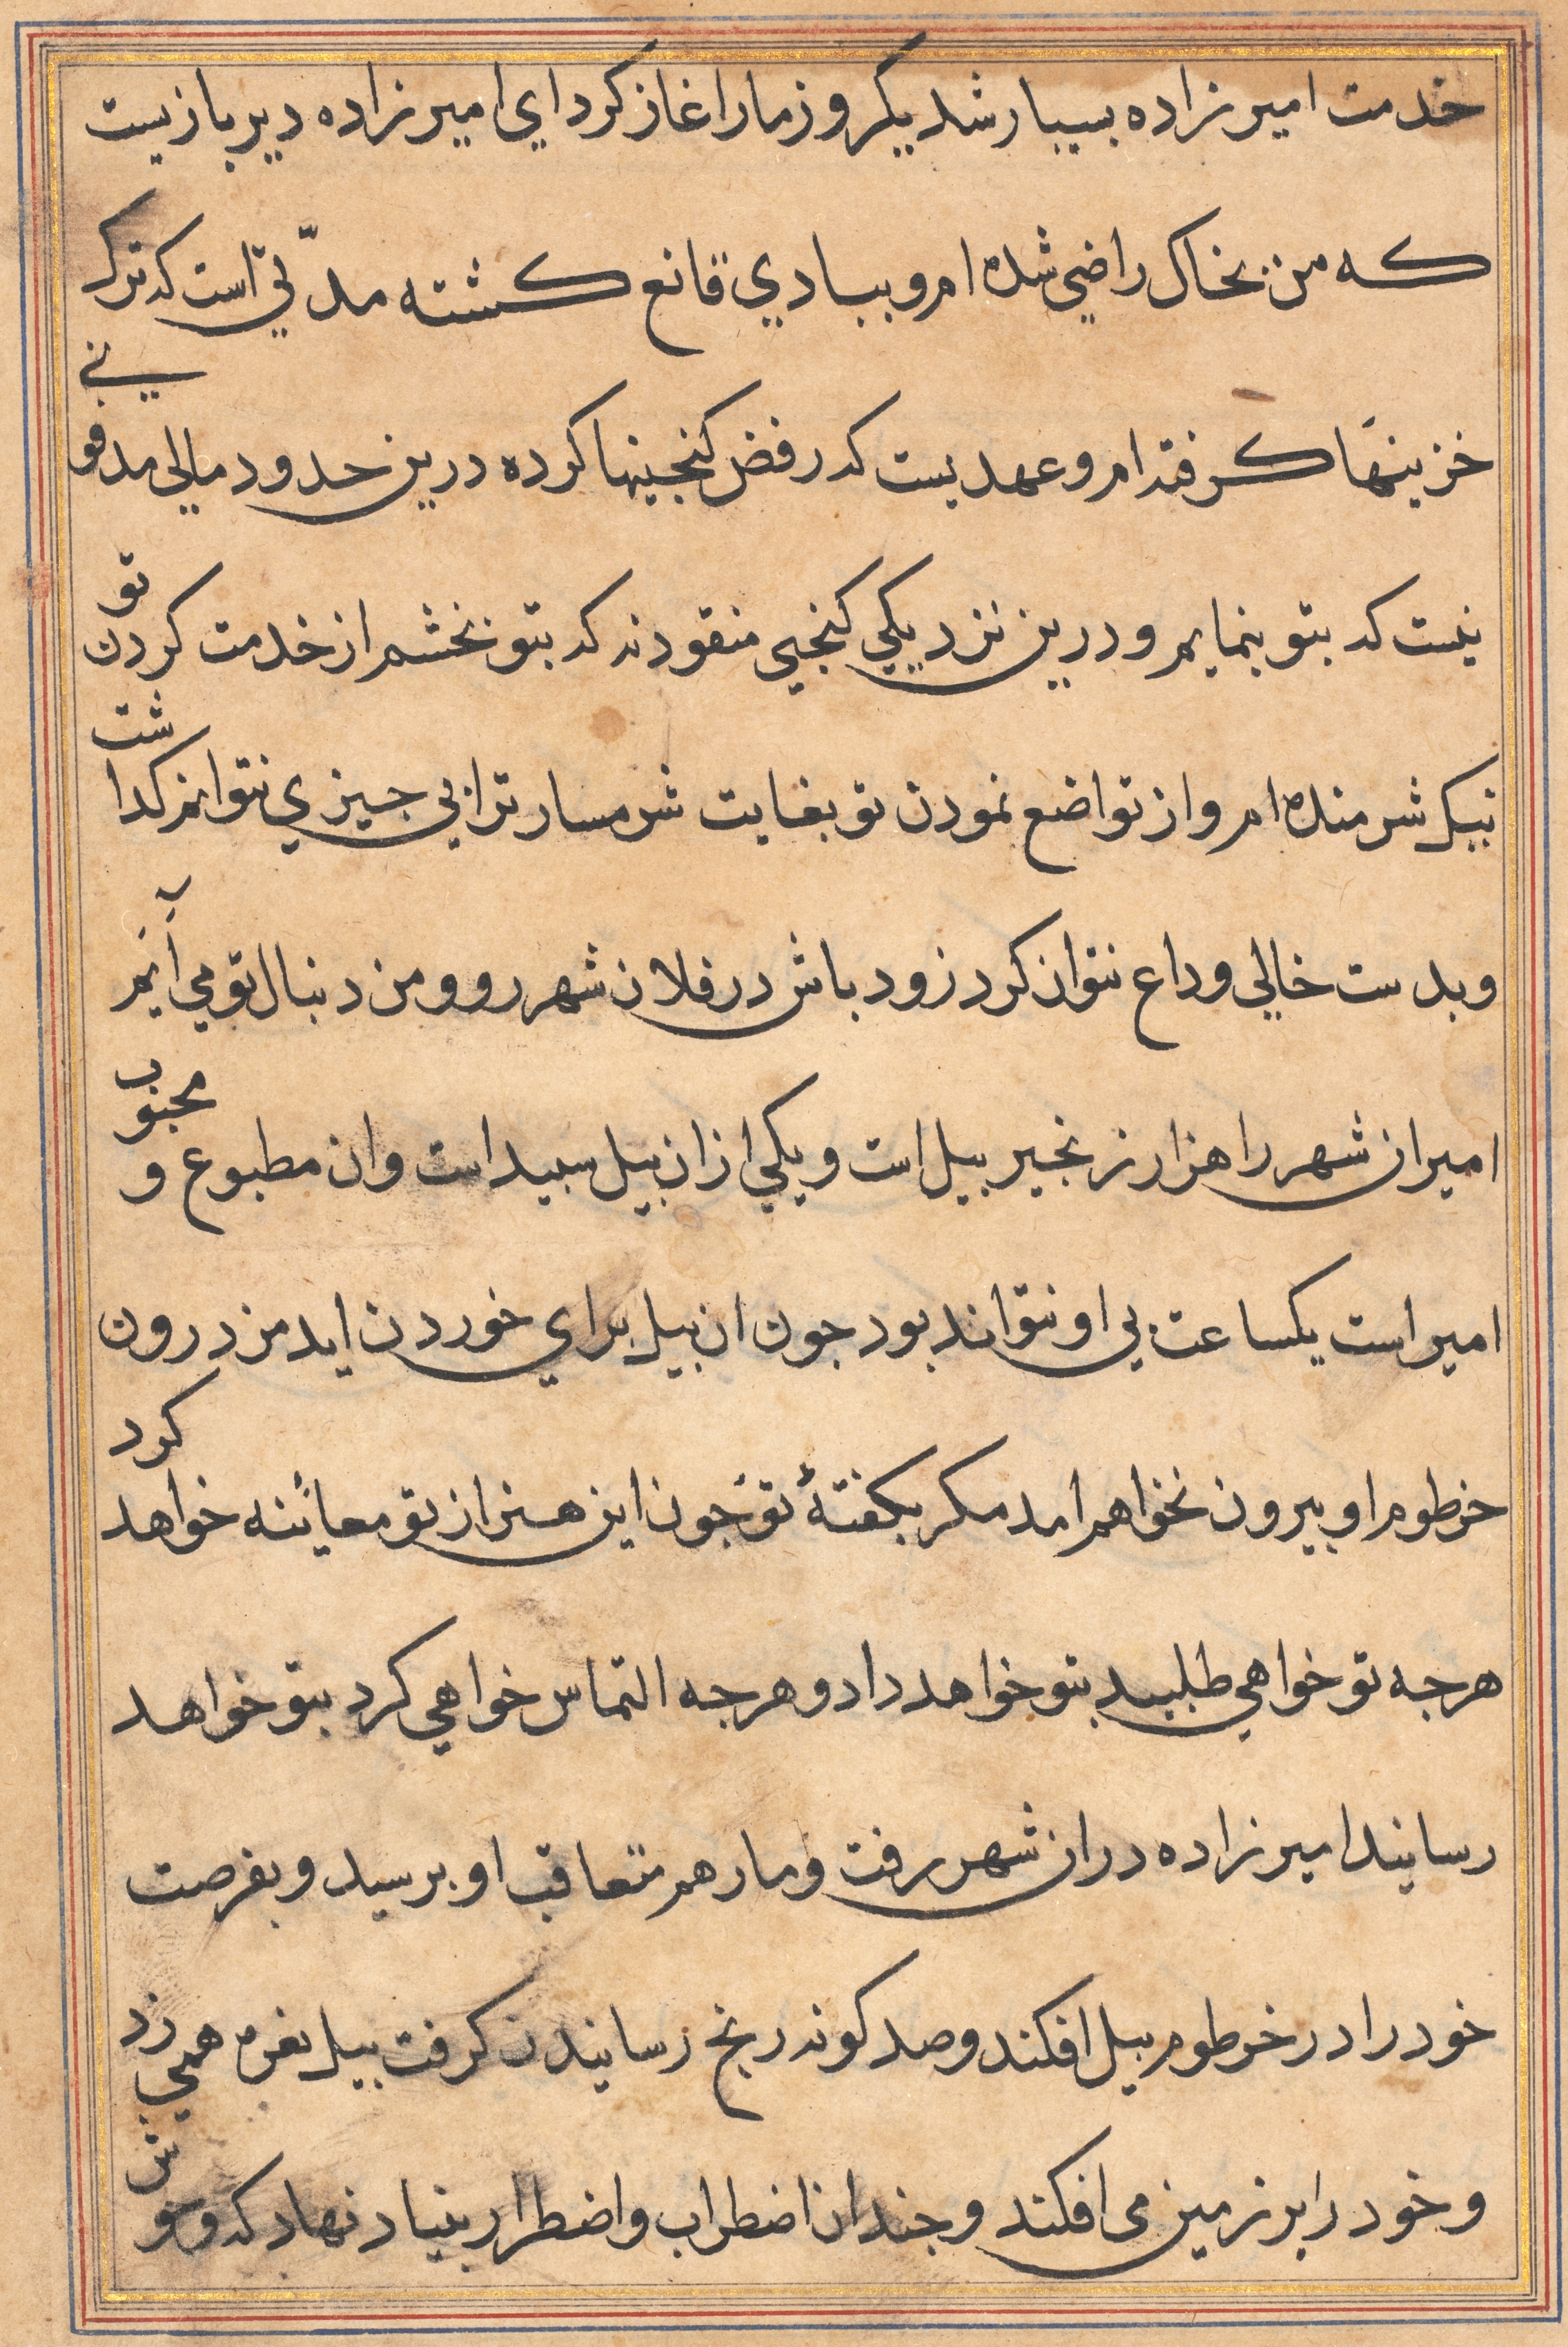 خدمت امیرزاده بسیار شد یکروز مار اغاز کرد ای امیرزاده دیر بازیست
که من بخاک راضی شده ام و ببادی قانع کشته مدّتی است که ترک
خزینهَا کرفته ام و عهدیست که رفض کنجینها کرده درین حدود مالی مدفو
نی
نیست که بتو بنمایم و درین نزدیکی کنجی منقود نه که بتو بخشم از خدمت کردن
تو
نیک شرمنده ام و از تواضع نمودن تو بغایت شرمسار ترا بی جیزی نتوانم کذا
شت
و بدست خالی وداع نتوان کرد زود باش در فلان شهر رو و من دنبال تو می آیم
امیر ان شهر را هزار زنجیر بیل است و یکی ازان بیل سبید است و ان مطبوع و
محبوب
امیر است یکساعت بی او نتواند بود جون ان بیل برای خوردن اید من درون
خرطوم او بیرون نخواهم امد مکر بکفتهٔ تو جون این هنر از تو معائنه خواهد
کرد
هرجه تو خواهی طلبید بتو خواهد داد و هرجه التماس خواهی کرد بتو خواهد
رسانید امیرزاده دران شهر رفت و مار هم متعاقب او برسید و بفرصت
خود را در خرطوم بیل افکند و صد کونه رنج رسانیدن کرفت بیل نعره همی زد
و خود را بر زمین می افکند و جندان اضطراب و اضطرار بنیاد نهاد که وحو
ش